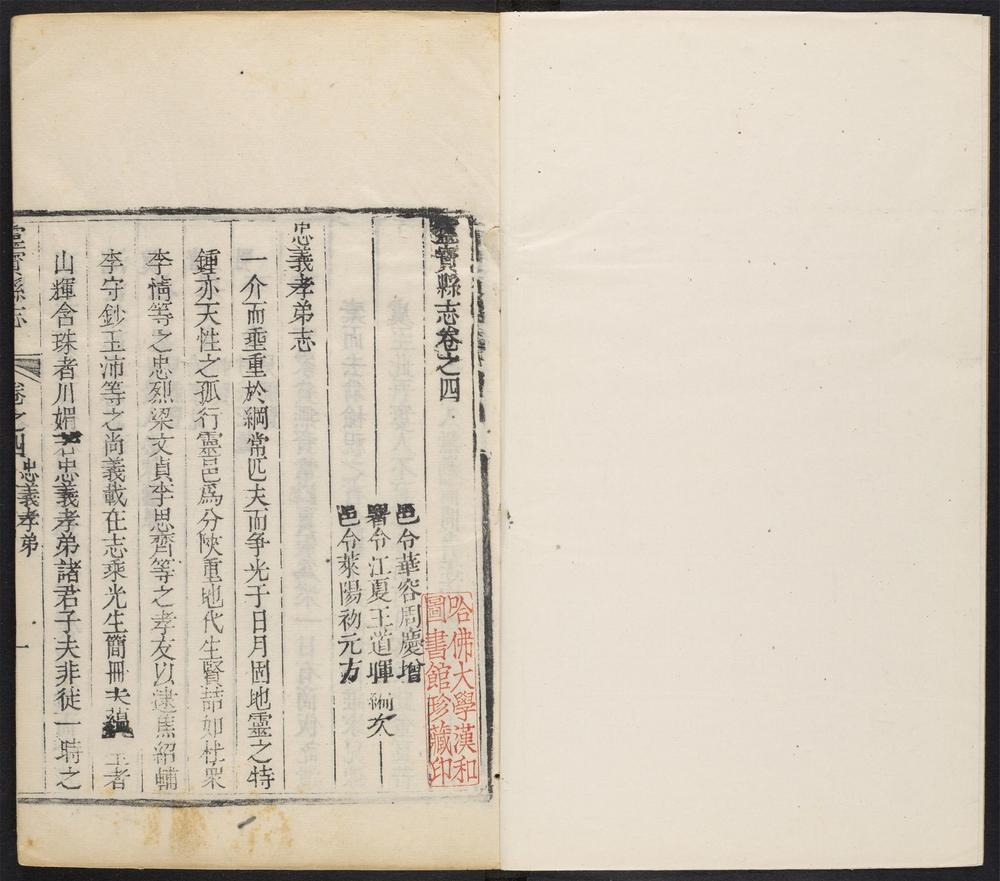 靈寶縣志卷之四
邑令華容周慶增
署令江夏王道暉編次
邑令萊陽初元方
忠義孝弟志
一介而埀重於綱常匹夫而爭光于日月固地靈之特
鍾亦天性之孤行靈邑爲分陜重地代生賢喆如杜衆
李情等之忠烈梁文貞李思齊等之孝友以逮焦紹輔
李守鈔玉沛等之尚義載在志乘光生簡冊夫蘊玉者
山輝含珠者川媚若忠義孝弟諸君子夫非徒一時之
靈寶縣志
卷之四
忠義孝弟
一
哈佛大學漢和
圖書館珍藏印